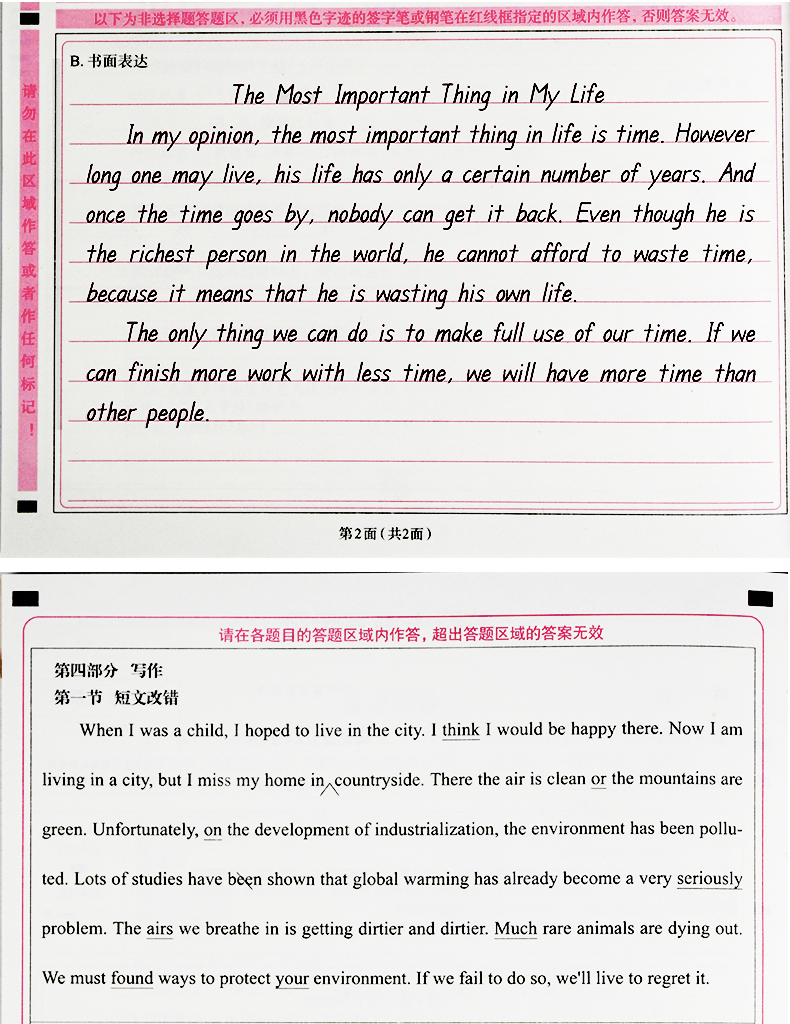 以下为非选择题答题区，必须用黑色字迹的签字笔或钢笔在红线框指定的区域内作答，否则答案无效。
请勿在此区域作答或者作任何标记！
B. 书面表达
The Most Important Thing in My Life
In my opinion, the most important thing in life is time. However
long one may live, his life has only a certain number of years. And
once the time goes by, nobody can get it back. Even though he is
the richest person in the world, he cannot afford to waste time,
because it means that he is wasting his own life.
The only thing we can do is to make full use of our time. If we
can finish more work with less time, we will have more time than
other people.
第2面(共2面)
请在各题目的答题区域内作答，超出答题区域的答案无效
第四部分 写作
第一节 短文改错
When I was a child, I hoped to live in the city. I think I would be happy there. Now I am
living in a city, but I miss my home in countryside. There the air is clean or the mountains are
green. Unfortunately, on the development of industrialization, the environment has been pollu-
ted. Lots of studies have been shown that global warming has already become a very seriously
problem. The airs we breathe in is getting dirtier and dirtier. Much rare animals are dying out.
We must found ways to protect your environment. If we fail to do so, we'll live to regret it.